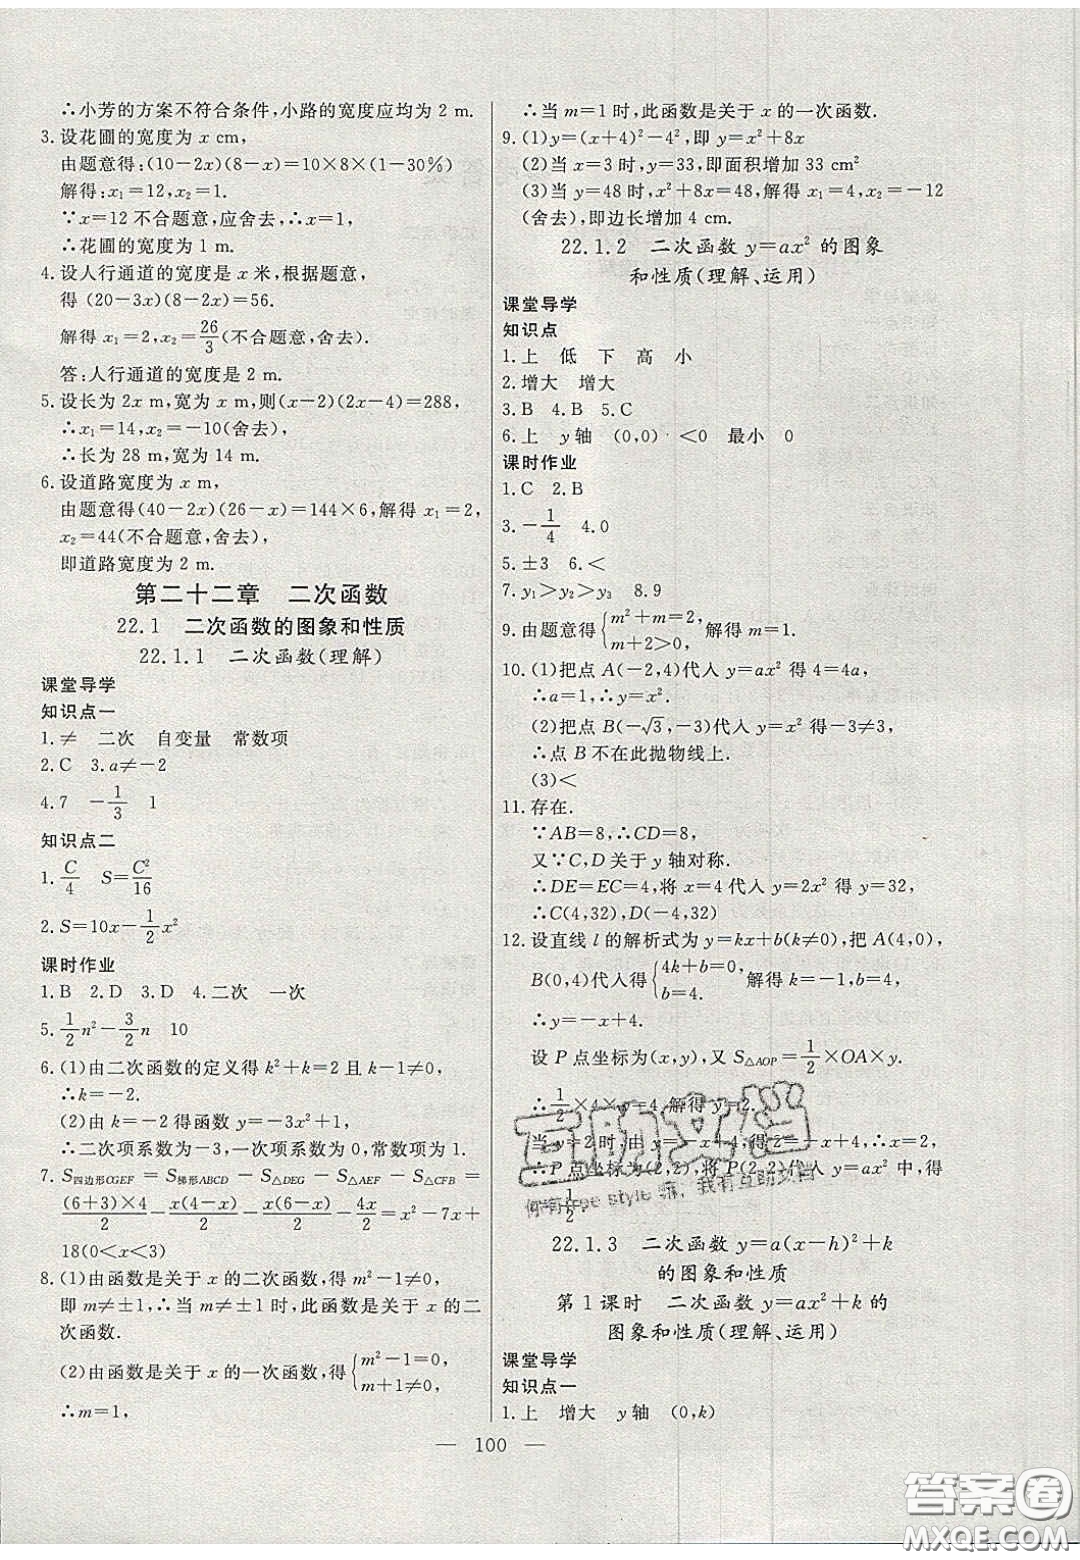 ∴小芳的方案不符合条件,小路的宽度应均为 2 m.
3. 设花圃的宽度为 x cm,
由题意得:(10－2x)(8－x)＝10×8×(1－30%)
解得:x₁＝12,x₂＝1,
∵x＝12 不合题意,应舍去,∴x＝1,
∴花圃的宽度为 1 m.
4. 设人行通道的宽度是 x 米,根据题意,
得 (20－3x)(8－2x)＝56.
解得 x₁＝2,x₂＝26/3(不合题意,舍去).
答:人行通道的宽度是 2 m.
5. 设长为 2x m,宽为 x m,则(x－2)(2x－4)＝288,
∴x₁＝14,x₂＝－10(舍去),
∴长为 28 m,宽为 14 m.
6. 设道路宽度为 x m,
由题意得(40－2x)(26－x)＝144×6,解得 x₁＝2,
x₂＝44(不合题意,舍去),
即道路宽度为 2 m.
第二十二章 二次函数
22.1 二次函数的图象和性质
22.1.1 二次函数(理解)
课堂导学
知识点一
1. ≠ 二次 自变量 常数项
2. C 3. a≠－2
4. 7 －1/3 1
知识点二
1. C/4 S＝C²/16
2. S＝10x－1/2x²
课时作业
1. B 2. D 3. D 4. 二次 一次
5. 1/2n²－3/2n 10
6. (1)由二次函数的定义得 k²＋k＝2 且 k－1≠0,
∴k＝－2.
(2)由 k＝－2 得函数 y＝－3x²＋1,
∴二次项系数为－3,一次项系数为 0,常数项为 1.
7. S四边形CGEF＝S梯形ABCD－S△DEG－S△AEF－S△CFB＝
(6＋3)×4/2－x(4－x)/2－x(3－x)/2－4x/2＝x²－7x＋
18(0＜x＜3)
8. (1)由函数是关于 x 的二次函数,得 m²－1≠0,
即 m≠±1,∴当 m≠±1 时,此函数是关于 x 的二
次函数.
(2)由函数是关于 x 的一次函数,得{m²－1＝0, m＋1≠0,
∴m＝1,
∴当 m＝1 时,此函数是关于 x 的一次函数.
9. (1)y＝(x＋4)²－4²,即 y＝x²＋8x
(2)当 x＝3 时,y＝33,即面积增加 33 cm²
(3)当 y＝48 时,x²＋8x＝48,解得 x₁＝4,x₂＝－12
(舍去),即边长增加 4 cm.
22.1.2 二次函数 y＝ax² 的图象
和性质(理解、运用)
课堂导学
知识点
1. 上 低 下 高 小
2. 增大 增大
3. B 4. B 5. C
6. 上 y 轴 (0,0) ＜0 最小 0
课时作业
1. C 2. B
3. －1/4 4. 0
5. ±3 6. ＜
7. y₁＞y₂＞y₃ 8. 9
9. 由题意得{m²＋m＝2, m＋2＞0,解得 m＝1.
10. (1)把点 A(－2,4)代入 y＝ax² 得 4＝4a,
∴a＝1,∴y＝x².
(2)把点 B(－√3,－3)代入 y＝x² 得－3≠3,
∴点 B 不在此抛物线上.
(3)＜
11. 存在.
∵AB＝8,∴CD＝8,
又∵C,D 关于 y 轴对称.
∴DE＝EC＝4,将 x＝4 代入 y＝2x² 得 y＝32,
∴C(4,32),D(－4,32)
12. 设直线 l 的解析式为 y＝kx＋b(k≠0),把 A(4,0),
B(0,4)代入得{4k＋b＝0, b＝4.解得 k＝－1,b＝4,
∴y＝－x＋4.
设 P 点坐标为(x,y),又 S△AOP＝1/2×OA×y.
∴1/2×4×y＝4,解得 y＝2.
当 y＝2 时,由 y＝－x＋4,得 2＝－x＋4,∴x＝2,
∴P 点坐标为(2,2),将 P(2,2)代入 y＝ax² 中,得
1/2.
22.1.3 二次函数 y＝a(x－h)²＋k
的图象和性质
第 1 课时 二次函数 y＝ax²＋k 的
图象和性质(理解、运用)
课堂导学
知识点一
1. 上 增大 y 轴 (0,k)
— 100 —
互助文档
你有free style 嘛,我有互助文档
答案圈
MXQE.COM